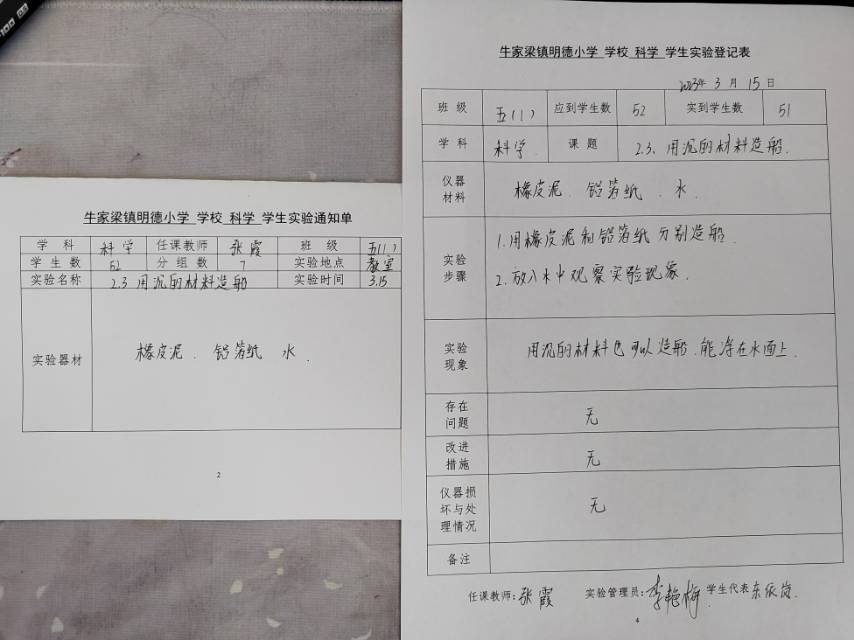 牛家梁镇明德小学 学校 科学 学生实验通知单
学 科 科学 任课教师 张霞 班 级 五(1)
学 生 数 52 分 组 数 7 实验地点 教室
实验名称 2.3 用沉的材料造船 实验时间 3.15
实验器材 橡皮泥 . 铝箔纸 水 .
2
牛家梁镇明德小学 学校 科学 学生实验登记表
2023年 3 月 15 日
班 级 五(1) 应到学生数 52 实到学生数 51
学 科 科学. 课 题 2.3、用沉的材料造船.
仪器
材料
橡皮泥. 铝箔纸 . 水 .
实验
步骤
1.用橡皮泥和铝箔纸分别造船.
2.放入水中观察实验现象.
实验
现象
用沉的材料也可以造船.能浮在水面上.
存在
问题
无
改进
措施
无
仪器损
坏与处
理情况
无
备注
任课教师:张霞 实验管理员:李艳梅 学生代表
4